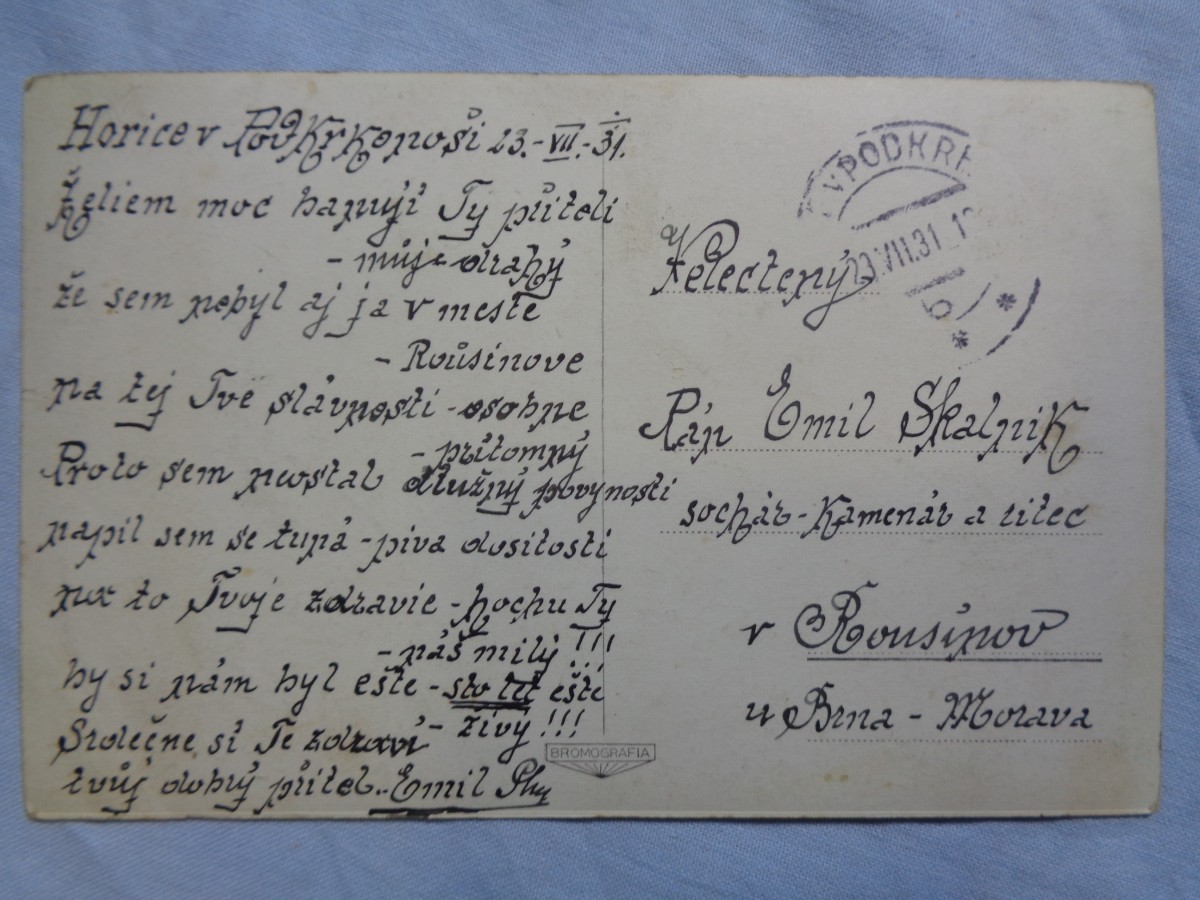 Horice v Podkrkonoši 23.-VII.-31.
Želiem moc hanují Ty příteli
- můj - drahý
že sem nebyl aj ja v meste
- Roůsinove
na tej Tvé slávnosti - osobne
- přítomný
Proto sem neostal dlužný povynosti
napil sem se tuná - piva dositosti
na to Tvoje zdravie - hochu Ty
- náš milý !!!
by si nám byl ešte - sto let ešte
- živý !!!
Srdečne si Te zdraví
tvůj dobrý přítel.. Emil
V PODKRK
23.VII.31
b
Velectený
Pán Emil Skalnik
sochár - Kamenár a litec
v Rousinov
u Brna - Morava
BROMOGRAFIA